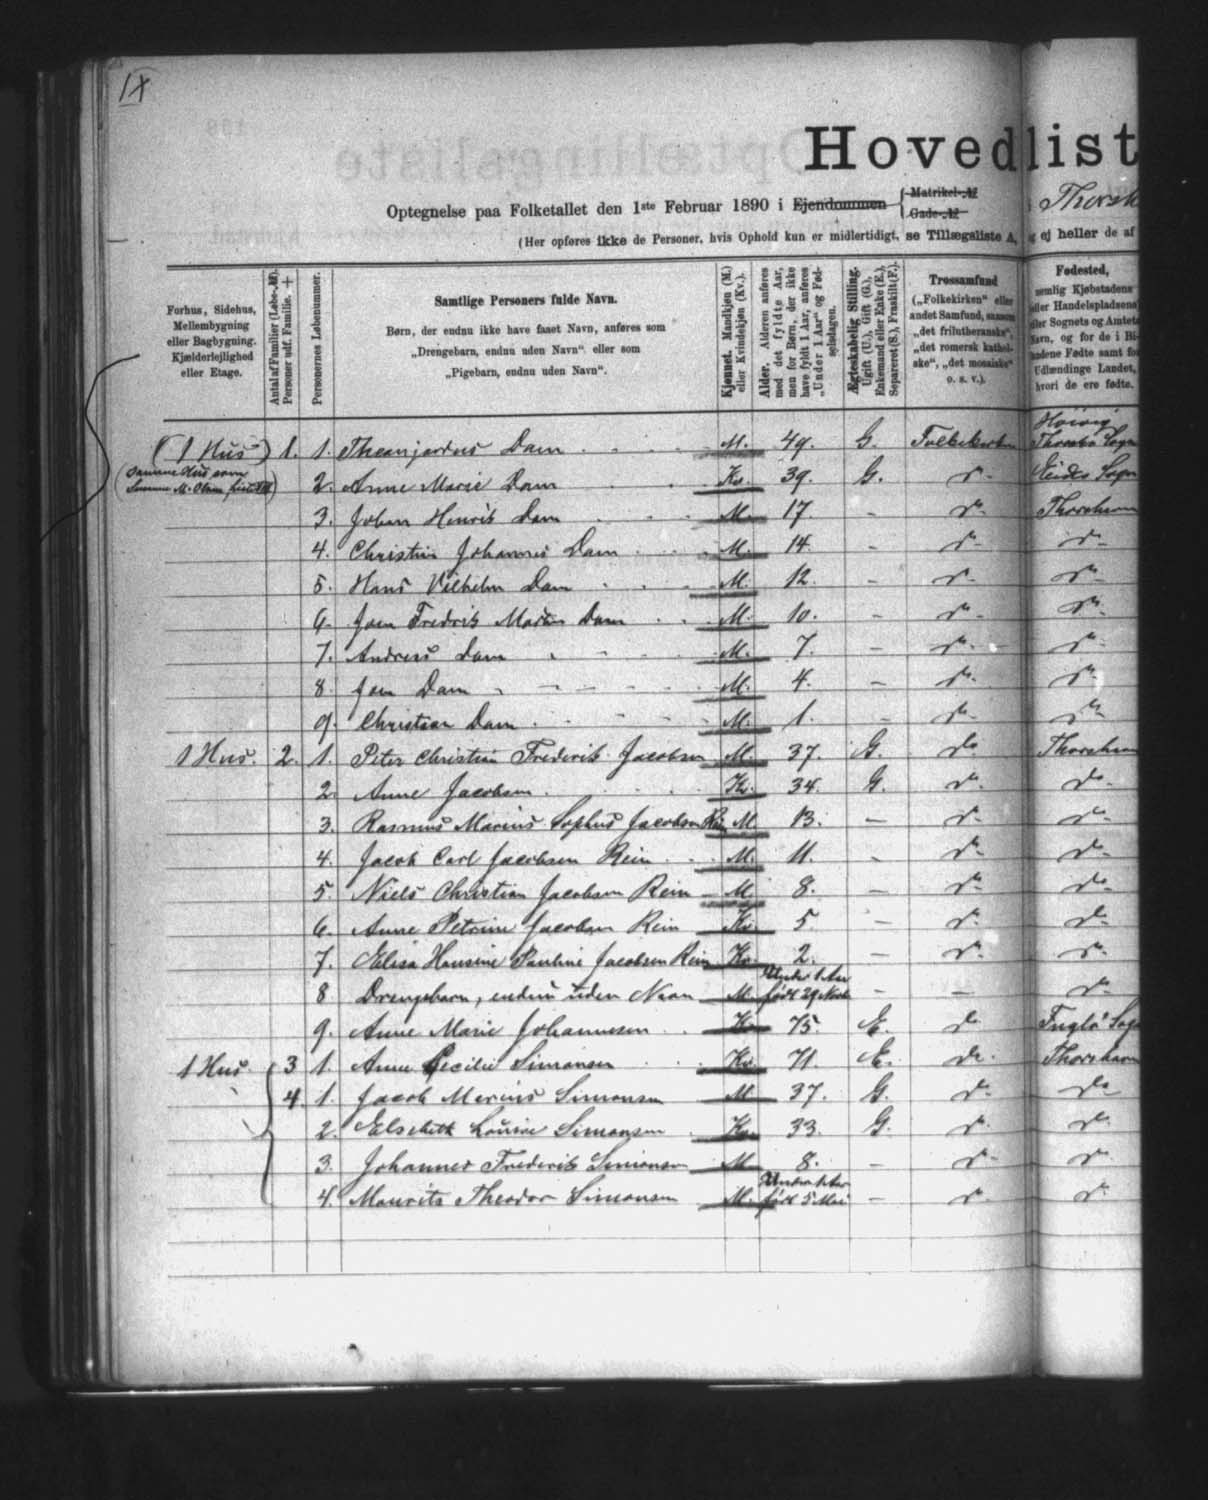 IX
Hovedlist
Optegnelse paa Folketallet den 1ste Februar 1890 i Ejendommen { Matrikel-№ Gade-№
(Her opføres ikke de Personer, hvis Ophold kun er midlertidigt, se Tillægsliste A, og ej heller de af
Forhus, Sidehus, Mellembygning eller Bagbygning. Kjælderlejlighed eller Etage.
Antal af Familier (Løbe-№). Personer udf. Familie. +
Personernes Løbenummer.
Samtlige Personers fulde Navn.
Børn, der endnu ikke have faaet Navn, anføres som
„Drengebarn, endnu uden Navn“ eller som
„Pigebarn, endnu uden Navn“.
Kjønnet. Mandkjøn (M.) eller Kvindekjøn (Kv.).
Alder. Alderen anføres med det fyldte Aar, men for Børn, der ikke have fyldt 1 Aar, anføres „Under 1 Aar“ og Fødselsdagen.
Ægteskabelig Stilling. Ugift (U.), Gift (G.), Enkemand eller Enke (E.), Separeret (S.), Fraskilt (F.).
Trossamfund
(„Folkekirken“ eller andet Samfund, saasom „det frilutheranske“, „det romersk katholske“, „det mosaiske“ o. s. v.).
Fødested,
(1 Hus) 1. 1. Dam M. 49. G. Folkekirken Thorshavn Sogn
samme Hus som
2. Anne Marie Dam Kv. 39. G. do Sogn
3. Johan Henrik Dam M. 17 - do Thorshavn
4. Christian Johannes Dam M. 14. - do do
5. Hans Vilhelm Dam M. 12. - do do
6. Joen Fredrik Martin Dam M. 10. - do do
7. Andreas Dam M. 7. - do do
8. Joen Dam M. 4. - do do
9. Christian Dam M. 1. - do do
1 Hus. 2. 1. Peter Christian Frederik Jacobsen M. 37. G. do Thorshavn
2. Anne Jacobsen Kv. 34. G. do do
3. Rasmus Marius Sophus Jacobsen Rein M 13. - do do
4. Jacob Carl Jacobsen Rein M. 11. - do do
5. Niels Christian Jacobsen Rein M. 8. - do do
6. Anne Petrine Jacobsen Rein Kv. 5. - do do
7. Elisa Hansine Pauline Jacobsen Rein Kv. 2. - do do
8 Drengebarn, endnu uden Navn M. Under 1 Aar født 29 Novb - - do
9. Anne Marie Johannesen Kv. 75. E. do Fuglø Sogn
1 Hus. 3 1. Anne Cecilie Simonsen Kv. 71. E. do. Thorshavn
4. 1. Jacob Merius Simonsen M. 37. G. do do
2. Elsebeth Louise Simonsen Kv. 33. G. do do
3. Johannes Frederik Simonsen M. 8. - do do
4. Maurits Theodor Simonsen M. Under 1 Aar født 5 Mai - do do